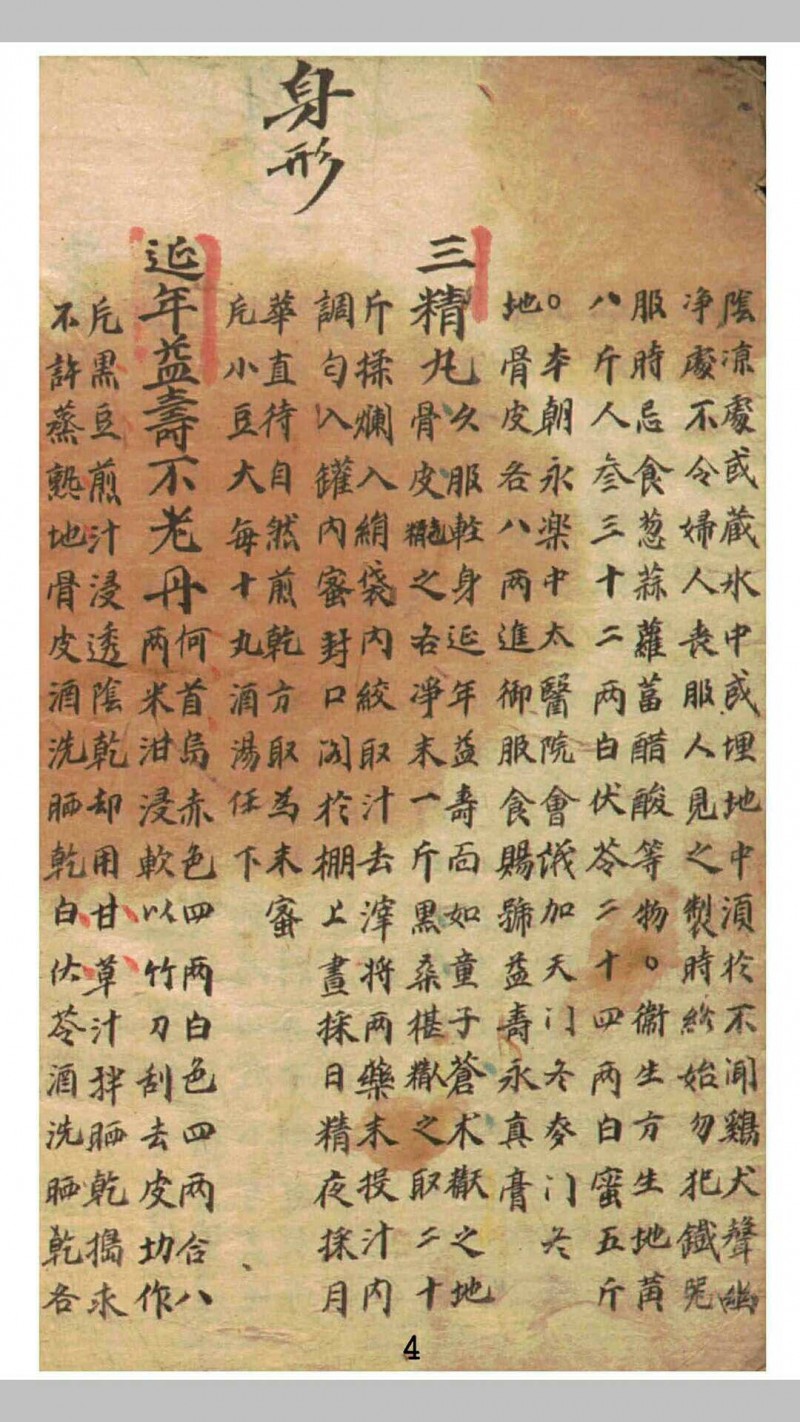 身形
陰凉處或藏水中或埋地中湏於不闻鷄犬聲幽
净處不令婦人丧服人見之製時終始勿犯鐡器
服時忌食葱蒜蘿葍醋酸等物○衞生方生地黄
八斤人參三十二两白茯苓二十四两白蜜五斤
○本朝永楽中太醫院會議加天门冬麥门冬
地骨皮各八两進御服食賜號益壽永真膏
三精丸
久服軽身延年益壽面如童子蒼术獻之地
骨皮之右净末一斤黒桑椹獻之取二十
斤揉爛入絹袋内絞取汁去滓将两藥末投汁内
調匀入罐内蜜封口阁於棚上晝採日精夜採月
華直待自然煎乾方取為末蜜
凡小豆大每十丸酒湯任下
延年益壽不老丹
何首烏赤色四两白色四两合八
两米泔浸軟以竹刀刮去皮切作
片黒豆煎汁浸透陰乾却用甘草汁拌晒乾搗末
不許蒸熟地骨皮酒洗晒乾白茯苓酒洗晒乾各
4